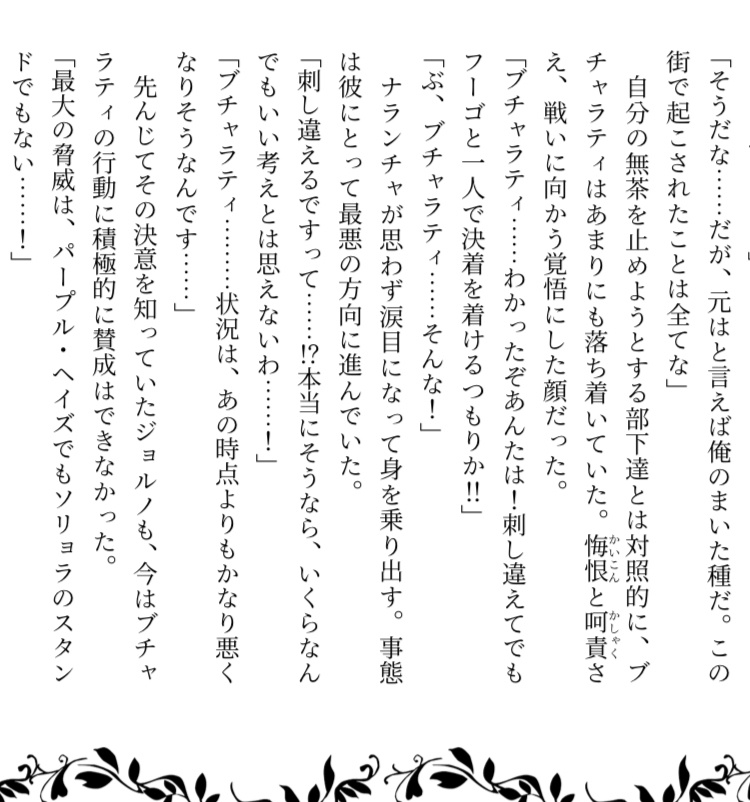 」
「そうだな……だが、元はと言えば俺のまいた種だ。この
街で起こされたことは全てな」
　自分の無茶を止めようとする部下達とは対照的に、ブ
チャラティはあまりにも落ち着いていた。悔恨と呵責さ
え、戦いに向かう覚悟にした顔だった。
「ブチャラティ……わかったぞあんたは！刺し違えてでも
フーゴと一人で決着を着けるつもりか!!」
「ぶ、ブチャラティ……そんな！」
　ナランチャが思わず涙目になって身を乗り出す。事態
は彼にとって最悪の方向に進んでいた。
「刺し違えるですって……!?本当にそうなら、いくらなん
でもいい考えとは思えないわ……！」
「ブチャラティ………状況は、あの時点よりもかなり悪く
なりそうなんです……」
　先んじてその決意を知っていたジョルノも、今はブチャ
ラティの行動に積極的に賛成はできなかった。
「最大の脅威は、パープル・ヘイズでもソリョラのスタン
ドでもない……！」